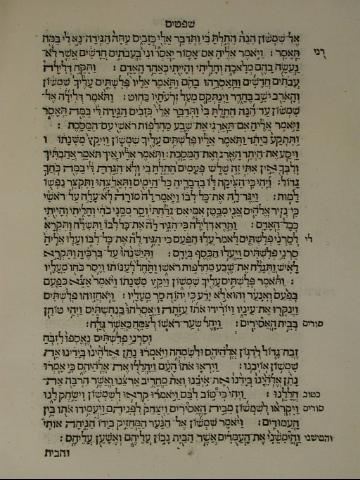 שפטים
אל שמשון הנה התלת בי ותדבר אלי כזבים עתה הגידה נא לי במה
תאסר : ויאמר אליה אם אסור יאסרוני בעבתים חדשים אשר לא
נעשה בהם מלאכה וחליתי והייתי כאחד האדם : ותקח דלילה
עבתים חדשים ותאסרהו בהם ותאמר אליו פלשתים עליך שמשון
והארב ישב בחדר וינתקם מעל זרעתיו כחוט : ותאמר דלילה אל
שמשון עד הנה התלת בי ותדבר אלי כזבים הגידה לי במה תאסר
ויאמר אליה אם תארגי את שבע מחלפות ראשי עם המסכת :
ותתקע ביתד ותאמר אליו פלשתים עליך שמשון וייקץ משנתו
ויסע את היתד הארג ואת המסכת : ותאמר אליו איך תאמר אהבתיך
ולבך אין אתי זה שלש פעמים התלת בי ולא הגדת לי במה כחך
גדול : ויהי כי הציקה לו בדבריה כל הימים ותאלצהו ותקצר נפשו
למות : ויגד לה את כל לבו ויאמר לה מורה לא עלה על ראשי
כי נזיר אלהים אני מבטן אמי אם גלחתי וסר ממני כחי וחליתי והייתי
ככל האדם : ותרא דלילה כי הגיד לה את כל לבו ותשלח ותקרא
לסרני פלשתים לאמר עלו הפעם כי הגיד לה את כל לבו ועלו אליה
סרני פלשתים ויעלו הכסף בידם : ותישנהו על ברכיה ותקרא
לאיש ותגלח את שבע מחלפות ראשו ותחל לענותו ויסר כחו מעליו
: ותאמר פלשתים עליך שמשון ויקץ משנתו ויאמר אצא כפעם
בפעם ואנער והוא לא ידע כי יהוה סר מעליו : ויאחזוהו פלשתים
וינקרו את עיניו ויורידו אותו עזתה ויאסרוהו בנחשתים ויהי טוחן
בבית האסירים : ויחל שער ראשו לצמח כאשר גלח :
וסרני פלשתים נאספו לזבח
זבח גדול לדגון אלהיהם ולשמחה ויאמרו נתן אלהינו בידינו את
שמשון אויבנו : ויראו אתו העם ויהללו את אלהיהם כי אמרו
נתן אלהינו בידנו את איבנו ואת מחריב ארצנו ואשר הרבה את
חללנו : ויהי כי טוב לבם ויאמרו קראו לשמשון וישחק לנו
ויקראו לשמשון מבית האסירים ויצחק לפניהם ויעמידו אותו בין
העמודים : ויאמר שמשון אל הנער המחזיק בידו הניחה אותי
והימשני את העמדים אשר הבית נכון עליהם ואשען עליהם :
והבית